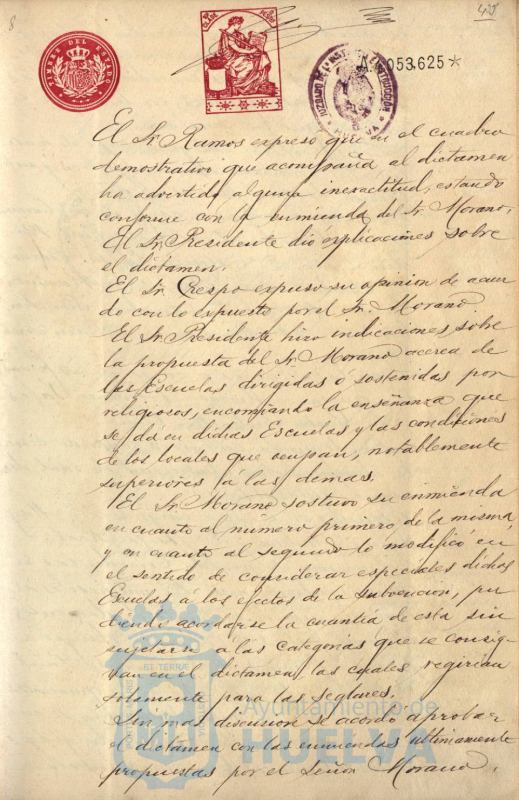 8
45
TIMBRE DEL ESTADO
A.0053.625*
JUZGADO DE 1ª INSTANCIA E INSTRUCCIÓN
HUELVA
El Sr. Ramos expresó que en el cuadro
demostrativo que acompaña al dictamen
ha advertido alguna inexactitud, estando
conforme con la enmienda del Sr. Morano.
El Sr. Presidente dió explicaciones sobre
el dictamen.
El Sr. Crespo expuso su opinion de acuer
do con lo expuesto por el Sr. Morano
El Sr. Presidente hizo indicaciones, sobre
la propuesta del Sr. Morano acerca de
las Escuelas dirigidas ó sostenidas por
religiosos, encomiando la enseñanza que
se dá en dichas Escuelas y las condiciones
de los locales que ocupan, notablemente
superiores á las demas.
El Sr. Morano sostuvo su enmienda
en cuanto al número primero de la misma,
y en cuanto al segundo lo modificó en
el sentido de considerar especiales dichas
Escuelas a los efectos de la subvencion, pu
diendo acordarse la cuantía de esta sin
sujetarse á las categorias que se consig-
nan en el dictamen, las cuales regirian
solamente para las seglares.
Sin mas discusion se acordó aprobar
el dictámen con las enmiendas ultimamente
propuestas por el Señor Morano.
Ayuntamiento de
HUELVA